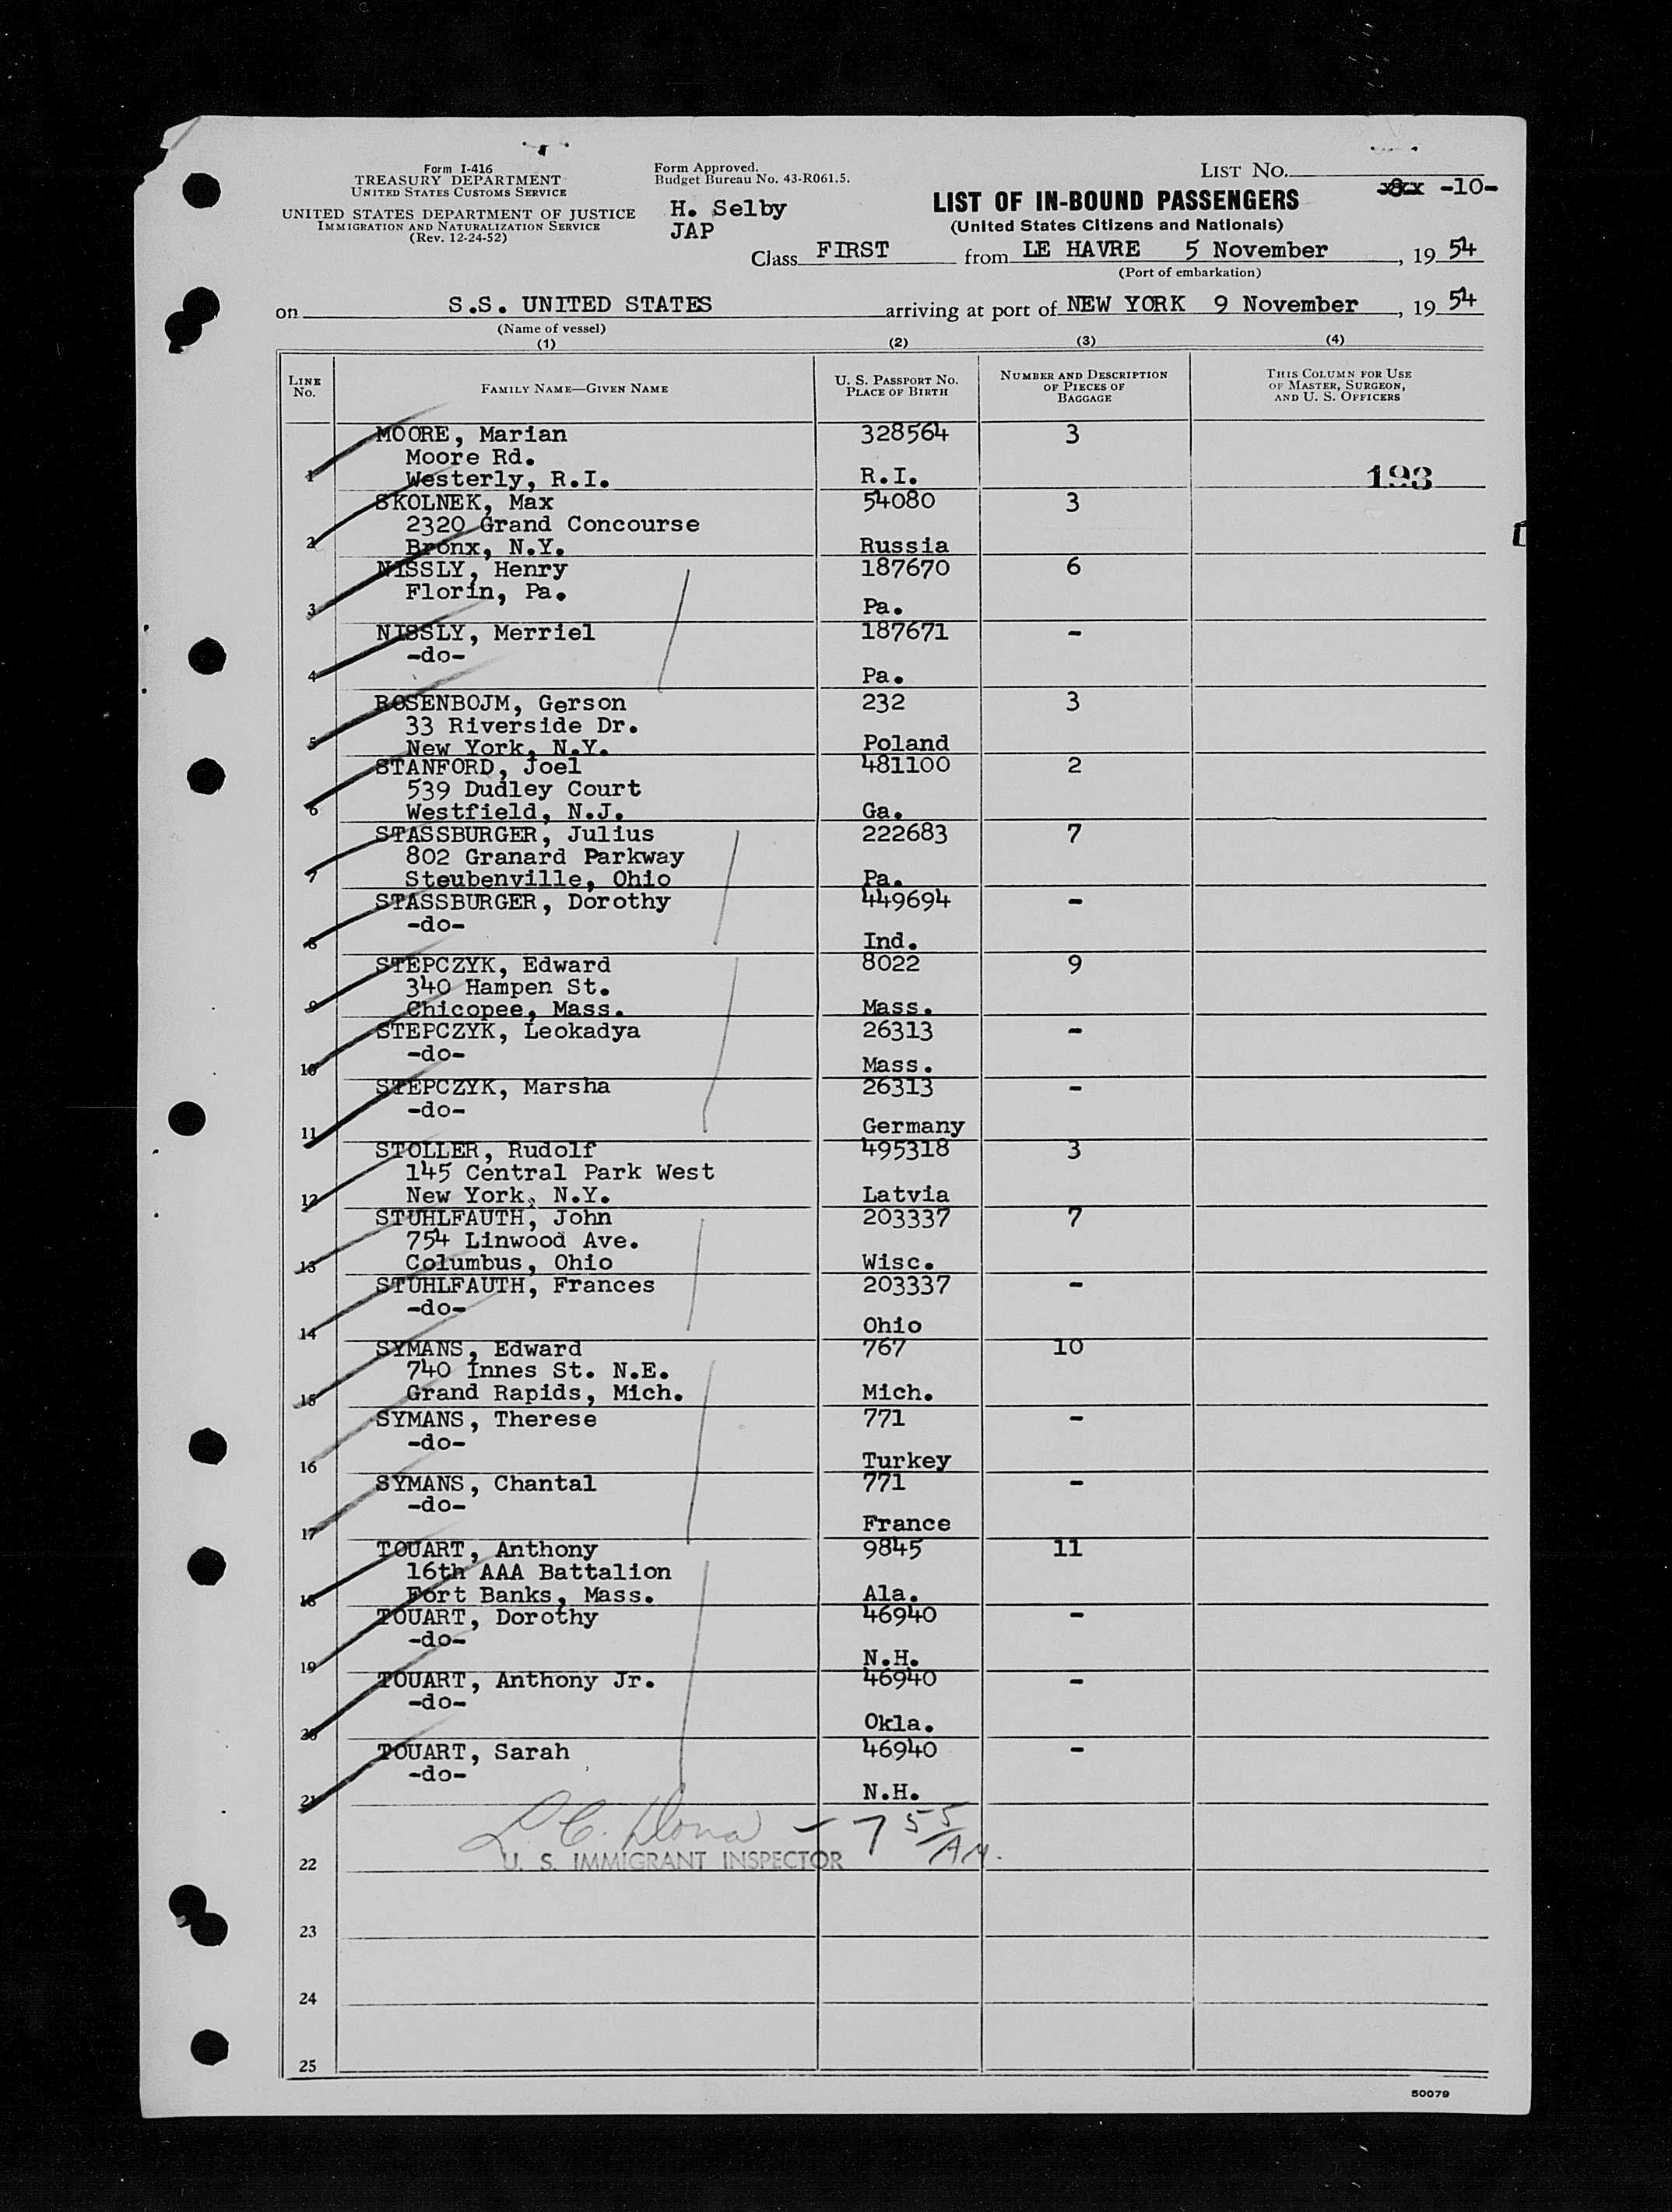 Form I-416
TREASURY DEPARTMENT
UNITED STATES CUSTOMS SERVICE
UNITED STATES DEPARTMENT OF JUSTICE
IMMIGRATION AND NATURALIZATION SERVICE
(Rev. 12-24-52)
Form Approved.
Budget Bureau No. 43-R061.5.
H. Selby
JAP
LIST NO. -10-
LIST OF IN-BOUND PASSENGERS
(United States Citizens and Nationals)
Class FIRST from LE HAVRE 5 November, 19 54
(Port of embarkation)
on S.S. UNITED STATES arriving at port of NEW YORK 9 November, 19 54
(Name of vessel)
(1) (2) (3) (4)
LINE NO. FAMILY NAME—GIVEN NAME U. S. PASSPORT NO. PLACE OF BIRTH NUMBER AND DESCRIPTION OF PIECES OF BAGGAGE THIS COLUMN FOR USE OF MASTER, SURGEON, AND U. S. OFFICERS
MOORE, Marian 328564 3
Moore Rd.
1 Westerly, R.I. R.I. 193
SKOLNEK, Max 54080 3
2320 Grand Concourse
2 Bronx, N.Y. Russia
NISSLY, Henry 187670 6
Florin, Pa.
3 Pa.
NISSLY, Merriel 187671 -
-do-
4 Pa.
ROSENBOJM, Gerson 232 3
33 Riverside Dr.
5 New York, N.Y. Poland
STANFORD, Joel 481100 2
539 Dudley Court
6 Westfield, N.J. Ga.
STASSBURGER, Julius 222683 7
802 Granard Parkway
7 Steubenville, Ohio Pa.
STASSBURGER, Dorothy 449694 -
-do-
8 Ind.
STEPCZYK, Edward 8022 9
340 Hampen St.
9 Chicopee, Mass. Mass.
STEPCZYK, Leokadya 26313 -
-do-
10 Mass.
STEPCZYK, Marsha 26313 -
-do-
11 Germany
STOLLER, Rudolf 495318 3
145 Central Park West
12 New York, N.Y. Latvia
STUHLFAUTH, John 203337 7
754 Linwood Ave.
13 Columbus, Ohio Wisc.
STUHLFAUTH, Frances 203337 -
-do-
14 Ohio
SYMANS, Edward 767 10
740 Innes St. N.E.
15 Grand Rapids, Mich. Mich.
SYMANS, Therese 771 -
-do-
16 Turkey
SYMANS, Chantal 771 -
-do-
17 France
TOUART, Anthony 9845 11
16th AAA Battalion
18 Fort Banks, Mass. Ala.
TOUART, Dorothy 46940 -
-do-
19 N.H.
TOUART, Anthony Jr. 46940 -
-do-
20 Okla.
TOUART, Sarah 46940 -
-do-
21 N.H.
L. C. - 7 55/AM.
U. S. IMMIGRANT INSPECTOR
22
23
24
25
50079